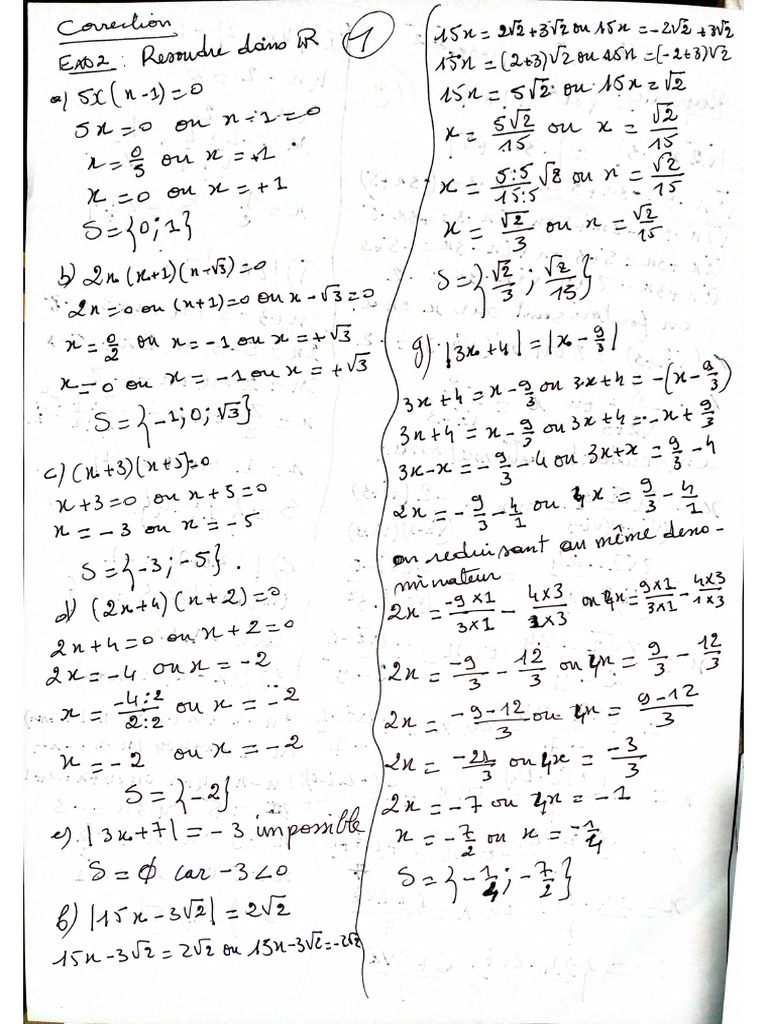 Correction
Exo2 : Resoudre dans IR
1
a) 5x(x-1)=0
5x=0 ou x-1=0
x=0/5 ou x=+1
x=0 ou x=+1
S={0;1}
b) 2x(x+1)(x-√3)=0
2x=0 ou (x+1)=0 ou x-√3=0
x=0/2 ou x=-1 ou x=+√3
x=0 ou x=-1 ou x=+√3
S={-1;0;√3}
c) (x+3)(x+5)=0
x+3=0 ou x+5=0
x=-3 ou x=-5
S={-3;-5}.
d) (2x+4)(x+2)=0
2x+4=0 ou x+2=0
2x=-4 ou x=-2
x=-4:2/2:2 ou x=-2
x=-2 ou x=-2
S={-2}
e) |3x+7|=-3 impossible
S=∅ car -3<0
f) |15x-3√2|=2√2
15x-3√2=2√2 ou 15x-3√2=-2√2
15x=2√2+3√2 ou 15x=-2√2+3√2
15x=(2+3)√2 ou 15x=(-2+3)√2
15x=5√2 ou 15x=√2
x=5√2/15 ou x=√2/15
x=5:5/15:5 √2 ou x=√2/15
x=√2/3 ou x=√2/15
S={√2/3;√2/15}
g) |3x+4|=|x-9/3|
3x+4=x-9/3 ou 3x+4=-(x-9/3)
3x+4=x-9/3 ou 3x+4=-x+9/3
3x-x=-9/3-4 ou 3x+x=9/3-4
2x=-9/3-4/1 ou 4x=9/3-4/1
on reduisant au même deno-
minateur
2x=-9×1/3×1-4×3/1×3 ou 4x=9×1/3×1-4×3/1×3
2x=-9/3-12/3 ou 4x=9/3-12/3
2x=-9-12/3 ou 4x=9-12/3
2x=-21/3 ou 4x=-3/3
2x=-7 ou 4x=-1
x=-7/2 ou x=-1/4
S={-1/4;-7/2}